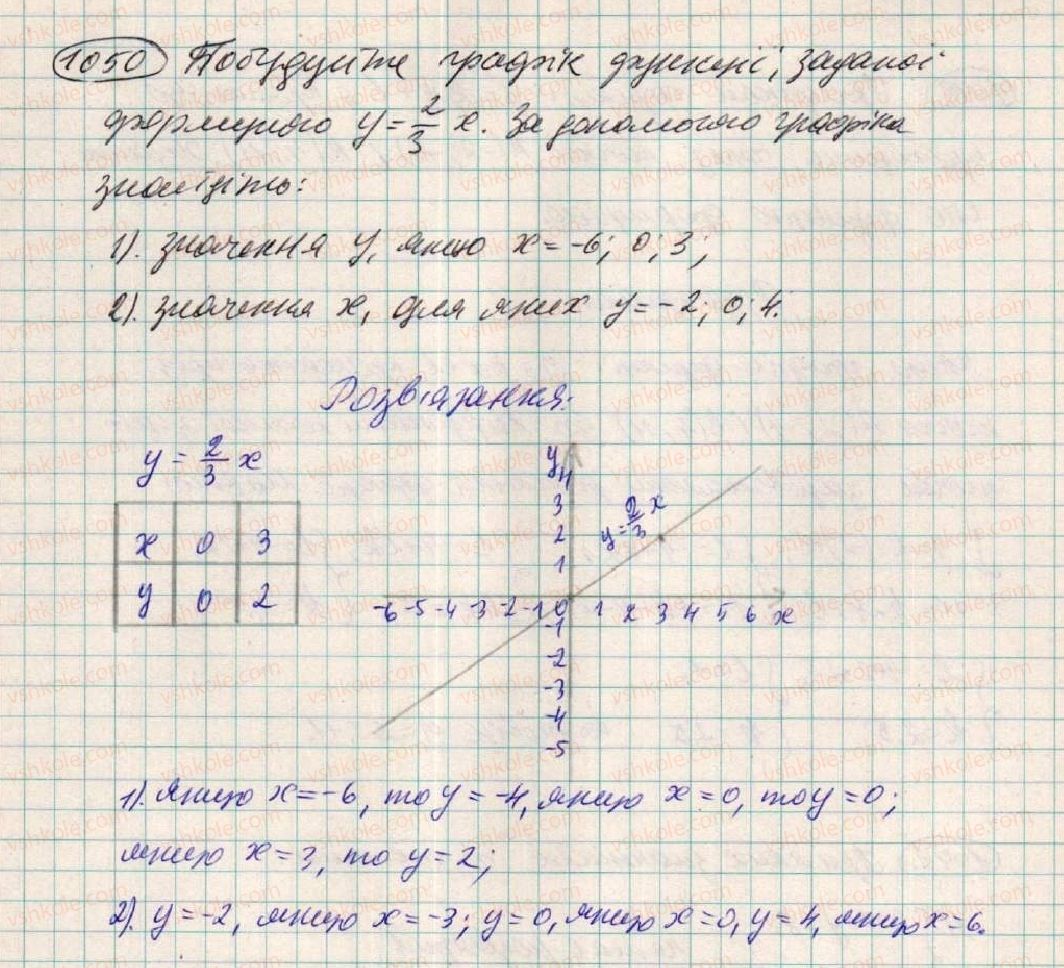 1050 Побудуйте графік функції, заданої
формулою y = 2/3 x. За допомогою графіка
знайдіть:
1). значення y, якщо x = -6; 0; 3;
2). значення x, для яких y = -2; 0; 4.
Розв'язання:
y = 2/3 x
x 0 3
y 0 2
y
4
3
2
1
y = 2/3 x
-6 -5 -4 -3 -2 -1 0 1 2 3 4 5 6 x
-1
-2
-3
-4
-5
1). Якщо x = -6, то y = -4, якщо x = 0, то y = 0;
якщо x = 3, то y = 2;
2). y = -2, якщо x = -3; y = 0, якщо x = 0, y = 4, якщо x = 6.
vshkole.com